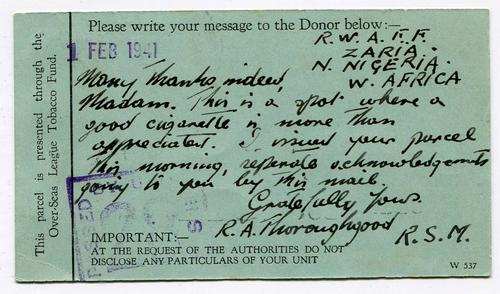 This parcel is presented through the
Over-Seas League Tobacco Fund.
Please write your message to the Donor below:—
1 FEB 1941
R. W. A. F. F.
ZARIA.
N. NIGERIA.
W. AFRICA
Many thanks indeed,
Madam. This is a spot where a
good cigarette is more than
appreciated. I issued your parcel
this morning, separate acknowledgements
going to you by this mail
Gratefully Yours.
R. A. Thoroughgood
R. S. M.
IMPORTANT:—
AT THE REQUEST OF THE AUTHORITIES DO NOT
DISCLOSE ANY PARTICULARS OF YOUR UNIT
W 537